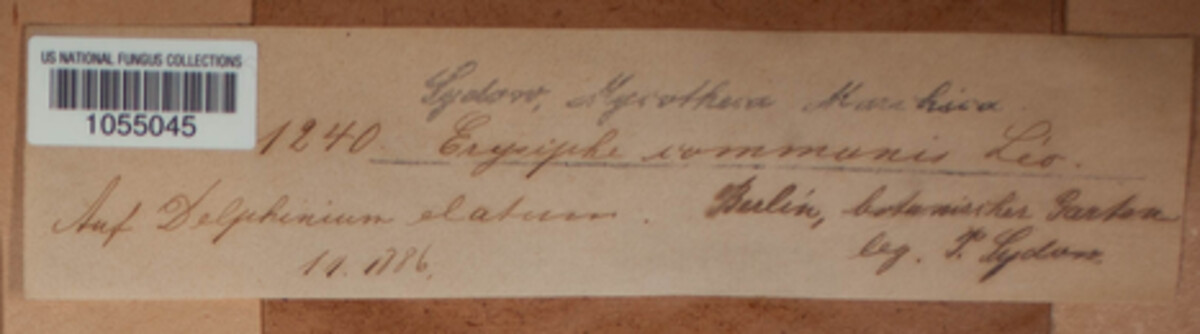 US NATIONAL FUNGUS COLLECTIONS
1055045
Sydow, Mycotheca Marchica
1240. Erysiphe communis Lév.
Auf Delphinium elatum. Berlin, botanischer Garten
1886. leg. P. Sydow.